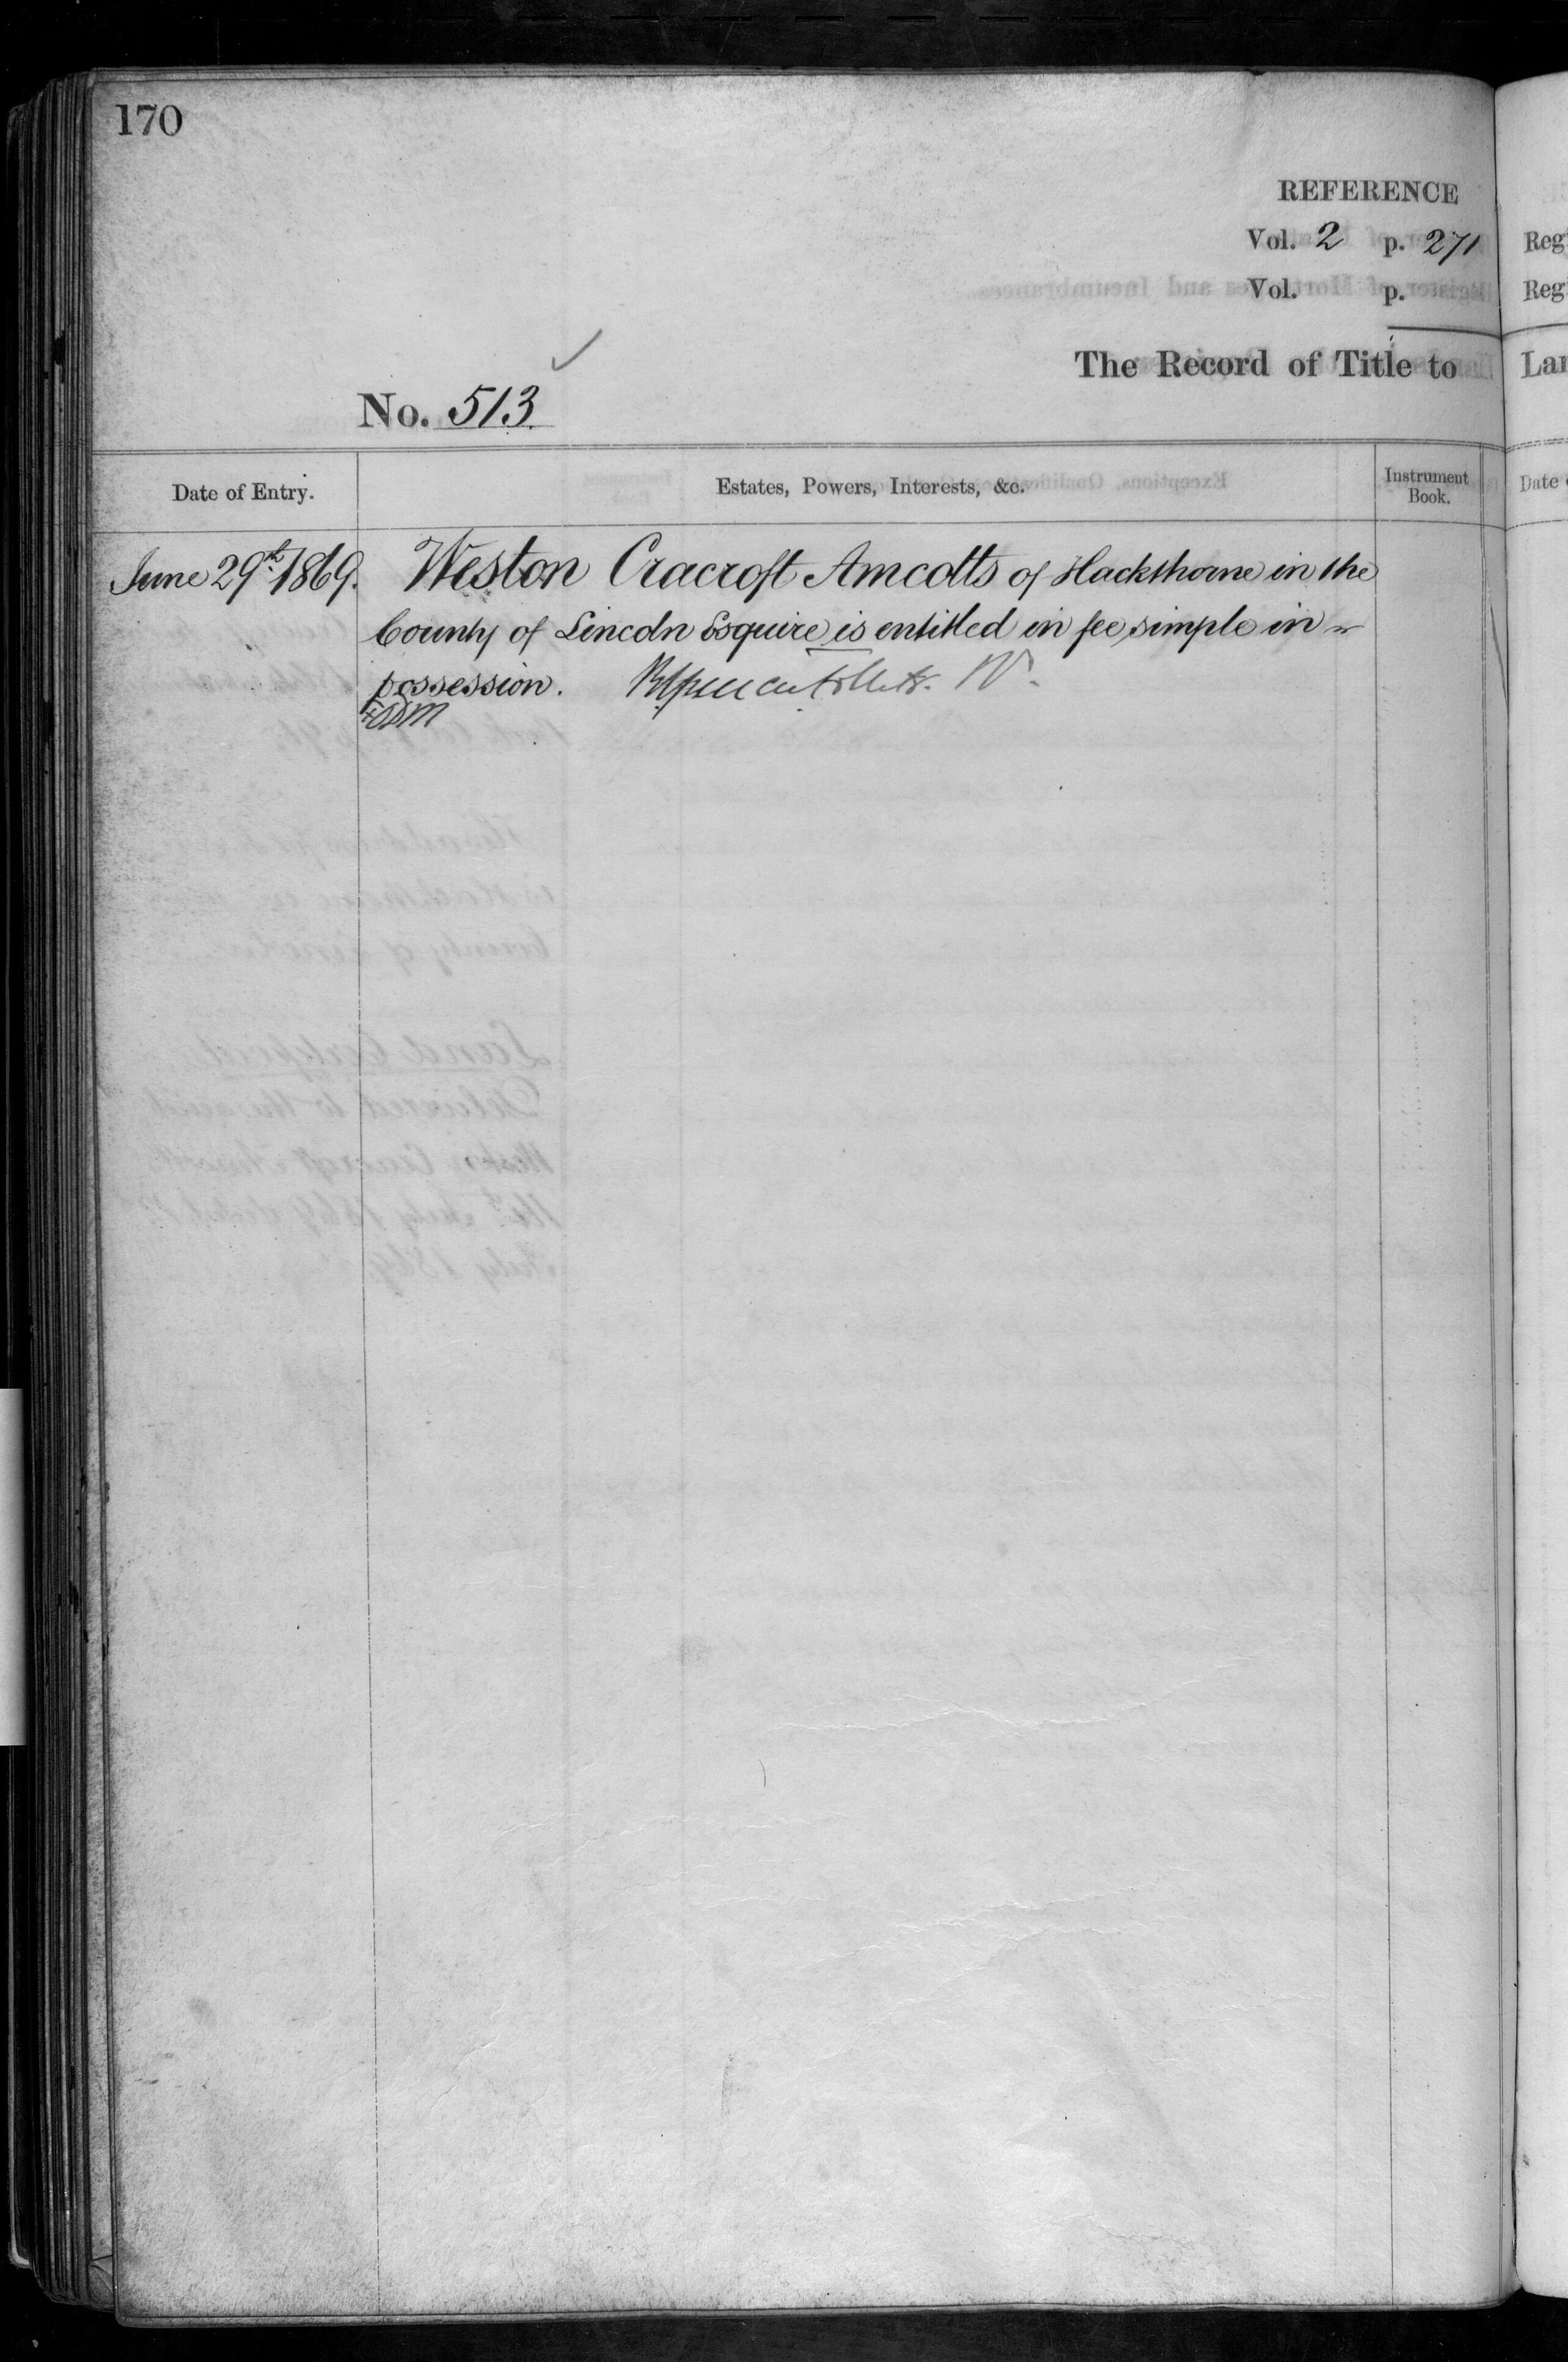 170
REFERENCE
Vol. 2 p. 271
Vol. p.
The Record of Title to
No. 513
Date of Entry.
Estates, Powers, Interests, &c.
Instrument
Book.
June 29th 1869.
Weston Cracroft Amcotts of Hackthorne in the
County of Lincoln Esquire is entitled in fee simple in
possession.
Reg
Reg
Lan
Date